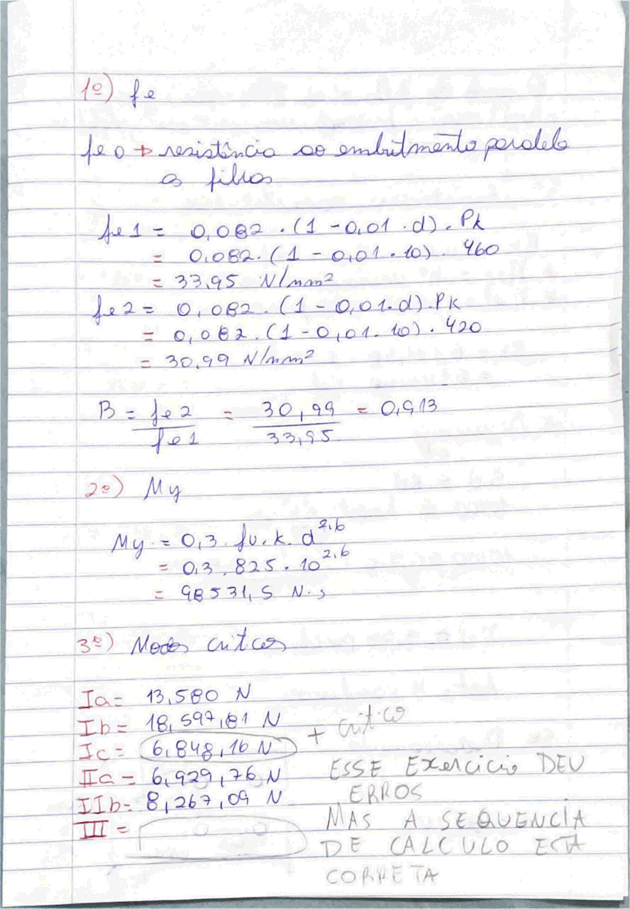 1º) fe
fe0 → resistência ao embutimento paralelo
as fibras
fe1 = 0,082 . (1 - 0,01 . d) . Pk
= 0,082 . (1 - 0,01 . 10) . 460
= 33,95 N/mm²
fe2 = 0,082 . (1 - 0,01 . d) . Pk
= 0,082 . (1 - 0,01 . 10) . 420
= 30,99 N/mm²
B = fe2 / fe1 = 30,99 / 33,95 = 0,913
2º) My
My = 0,3 . fu.k . d^2,6
= 0,3 . 825 . 10^2,6
= 98531,5 N.
3º) Modos criticos
Ia = 13,580 N
Ib = 18,597,81 N
Ic = 6,848,16 N + critico
IIa = 6,929,76 N
IIb = 8,267,09 N
III =
ESSE Exercicio DEU
ERROS
MAS A SEQUENCIA
DE CALCULO ESTA
CORRETA